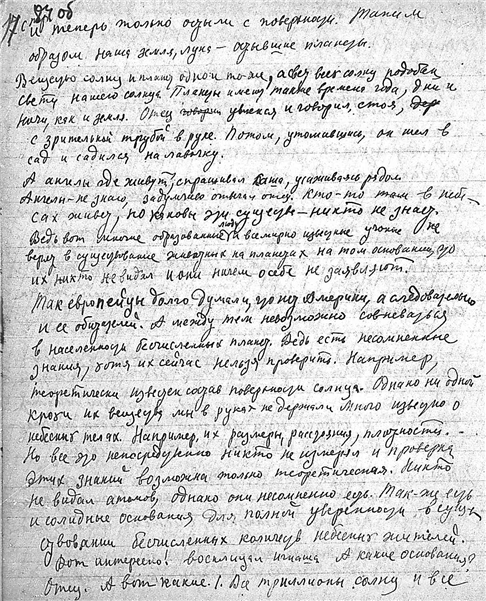 17 с 27 об
и теперь только остыли с поверхности. Таким
образом наша земля, луна – остывшие планеты.
Вещество солнц и планет одно и то-же, а свет всех солнц подобен
свету нашего солнца. Планеты имеют также времена года, дни и
ночи, как и земля. Отец увлекся и говорил, стоя,
с зрительной трубой в руке. Потом, утомившись, он шел в
сад и садился на лавочку.
А ангелы где живут, спрашивал усаживаясь рядом
Ангелы – не знаю, задумчиво отвечал отец. Кто-то там в небе-
сах живет, но каковы эти существа – никто не знает.
Ведь вот многие образованные люди и всемирно известные ученые не
верят в существование животных на планетах на том основании, что
их никто не видал и они ничем о себе не заявляют.
Так европейцы долго думали, что нет Америки, а следовательно
и ее обитателей. А между тем невозможно сомневаться
в населенности бесчисленных планет. Ведь есть несомненные
знания, хотя их сейчас нельзя проверить. Например,
теоретически известен состав поверхности солнца. Однако ни одной
крохи их вещества мы в руках не держали. Много известно о
небесных телах. Например, их размеры, расстояния, плотность. –
Но все это непосредственно никто не измерял и проверка
этих знаний возможна только теоретическая. Никто
не видал атомов, однако они несомненно есть. Так-же есть
и солидные основания для полной уверенности в суще
ствовании бесчисленных количеств небесных жителей.
Вот интересно! восклицал Игнаша А какие основания?
Отец. А вот какие.! Все триллионы солнц и все